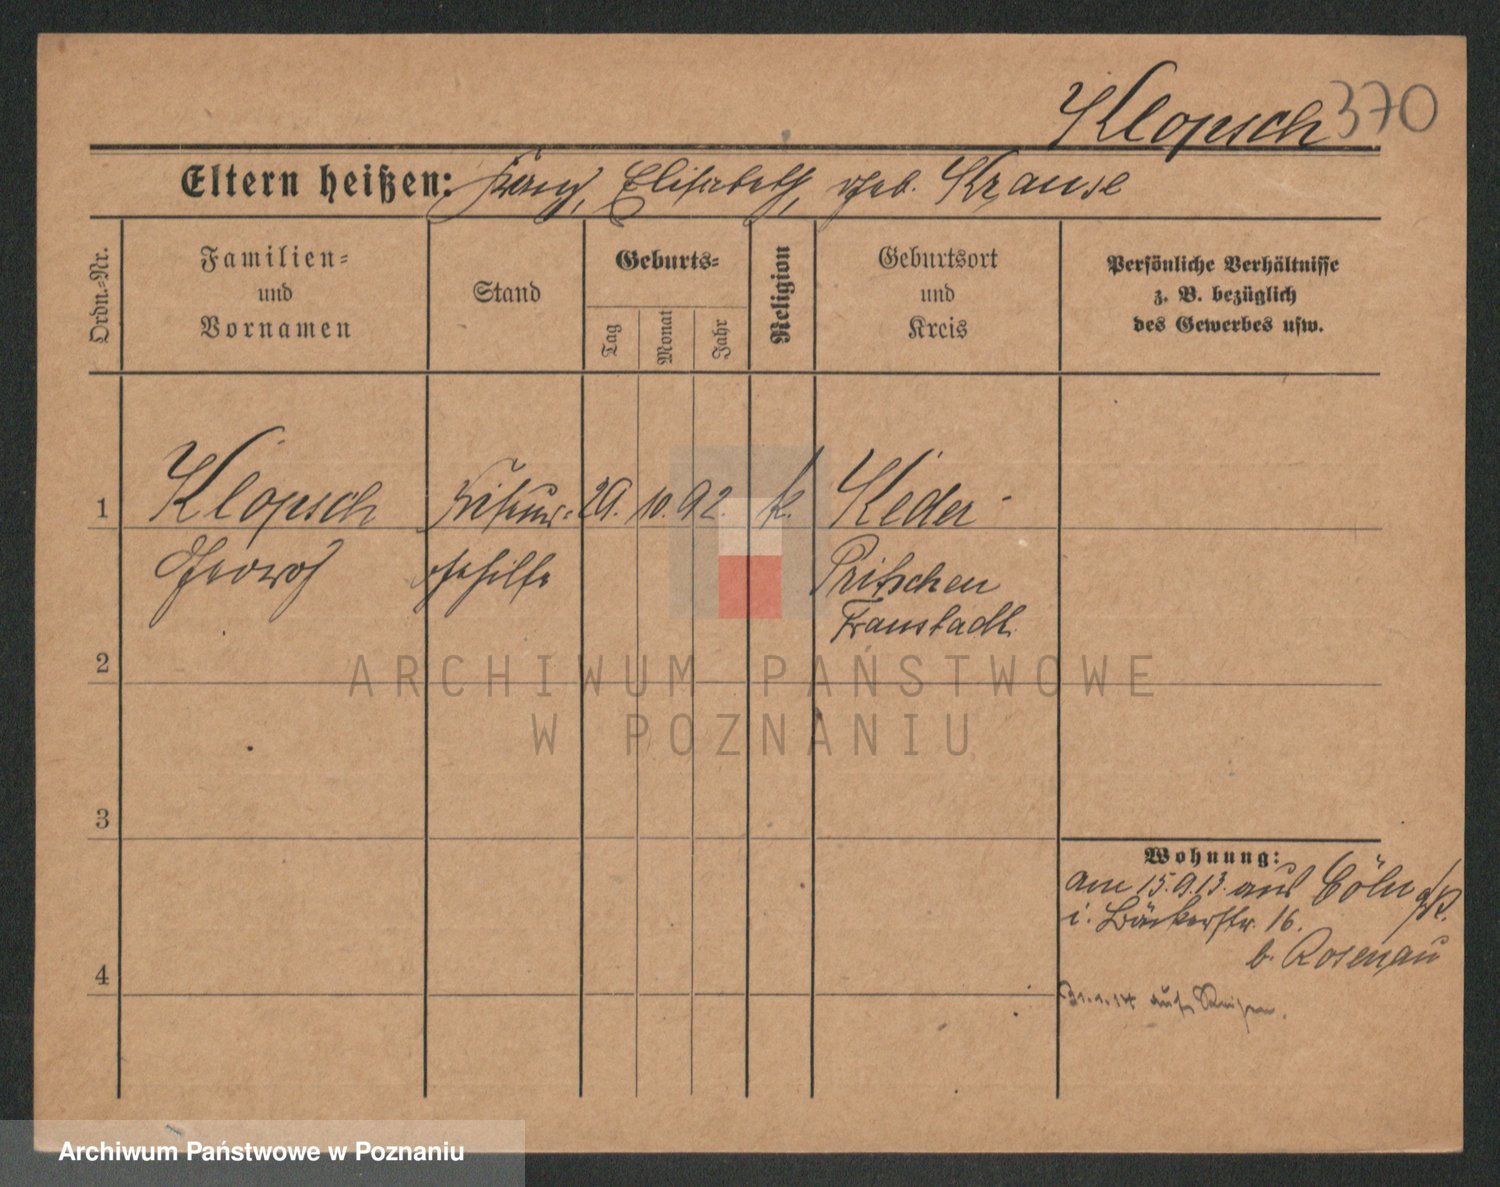 Klopsch 370
Eltern heißen: Franz, Elisabeth, geb. Krause
Ordn.-Nr.
Familien-
und
Vornamen
Stand
Geburts-
Tag
Monat
Jahr
Religion
Geburtsort
und
Kreis
Persönliche Verhältnisse
z. B. bezüglich
des Gewerbes usw.
1 Klopsch Friseur- 29. 10. 92. k. Neder-
gehilfe
Pritschen
Fraustadt.
2
ARCHIWUM PAŃSTWOWE
W POZNANIU
3
Wohnung:
am 15.9.13. aus Cöln a/R.
i. Bäckerstr. 16.
b. Rosenau
4
31.1.14 auf Reisen.
Archiwum Państwowe w Poznaniu